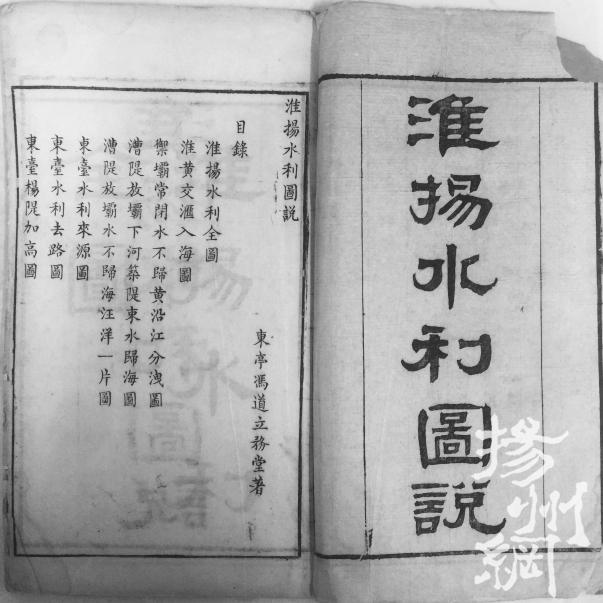 淮揚水利圖説
淮揚水利圖説
東亭馮道立務堂著
目錄
淮揚水利全圖
淮黄交滙入海圖
禦壩常閉水不歸黄沿江分洩圖
漕隄放壩下河築隄束水歸海圖
漕隄放壩水不歸海汪洋一片圖
東臺水利來源圖
東臺水利去路圖
東臺楊隄加高圖
揚州網